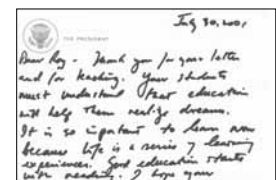 THE PRESIDENT
July 30, 2001
Dear Roy - Thank you for your letter
and for teaching. Your students
must understand that education
will help them realize dreams.
It is so important to learn now
because life is a series of learning
experiences. Good education starts
with reading. I hope your